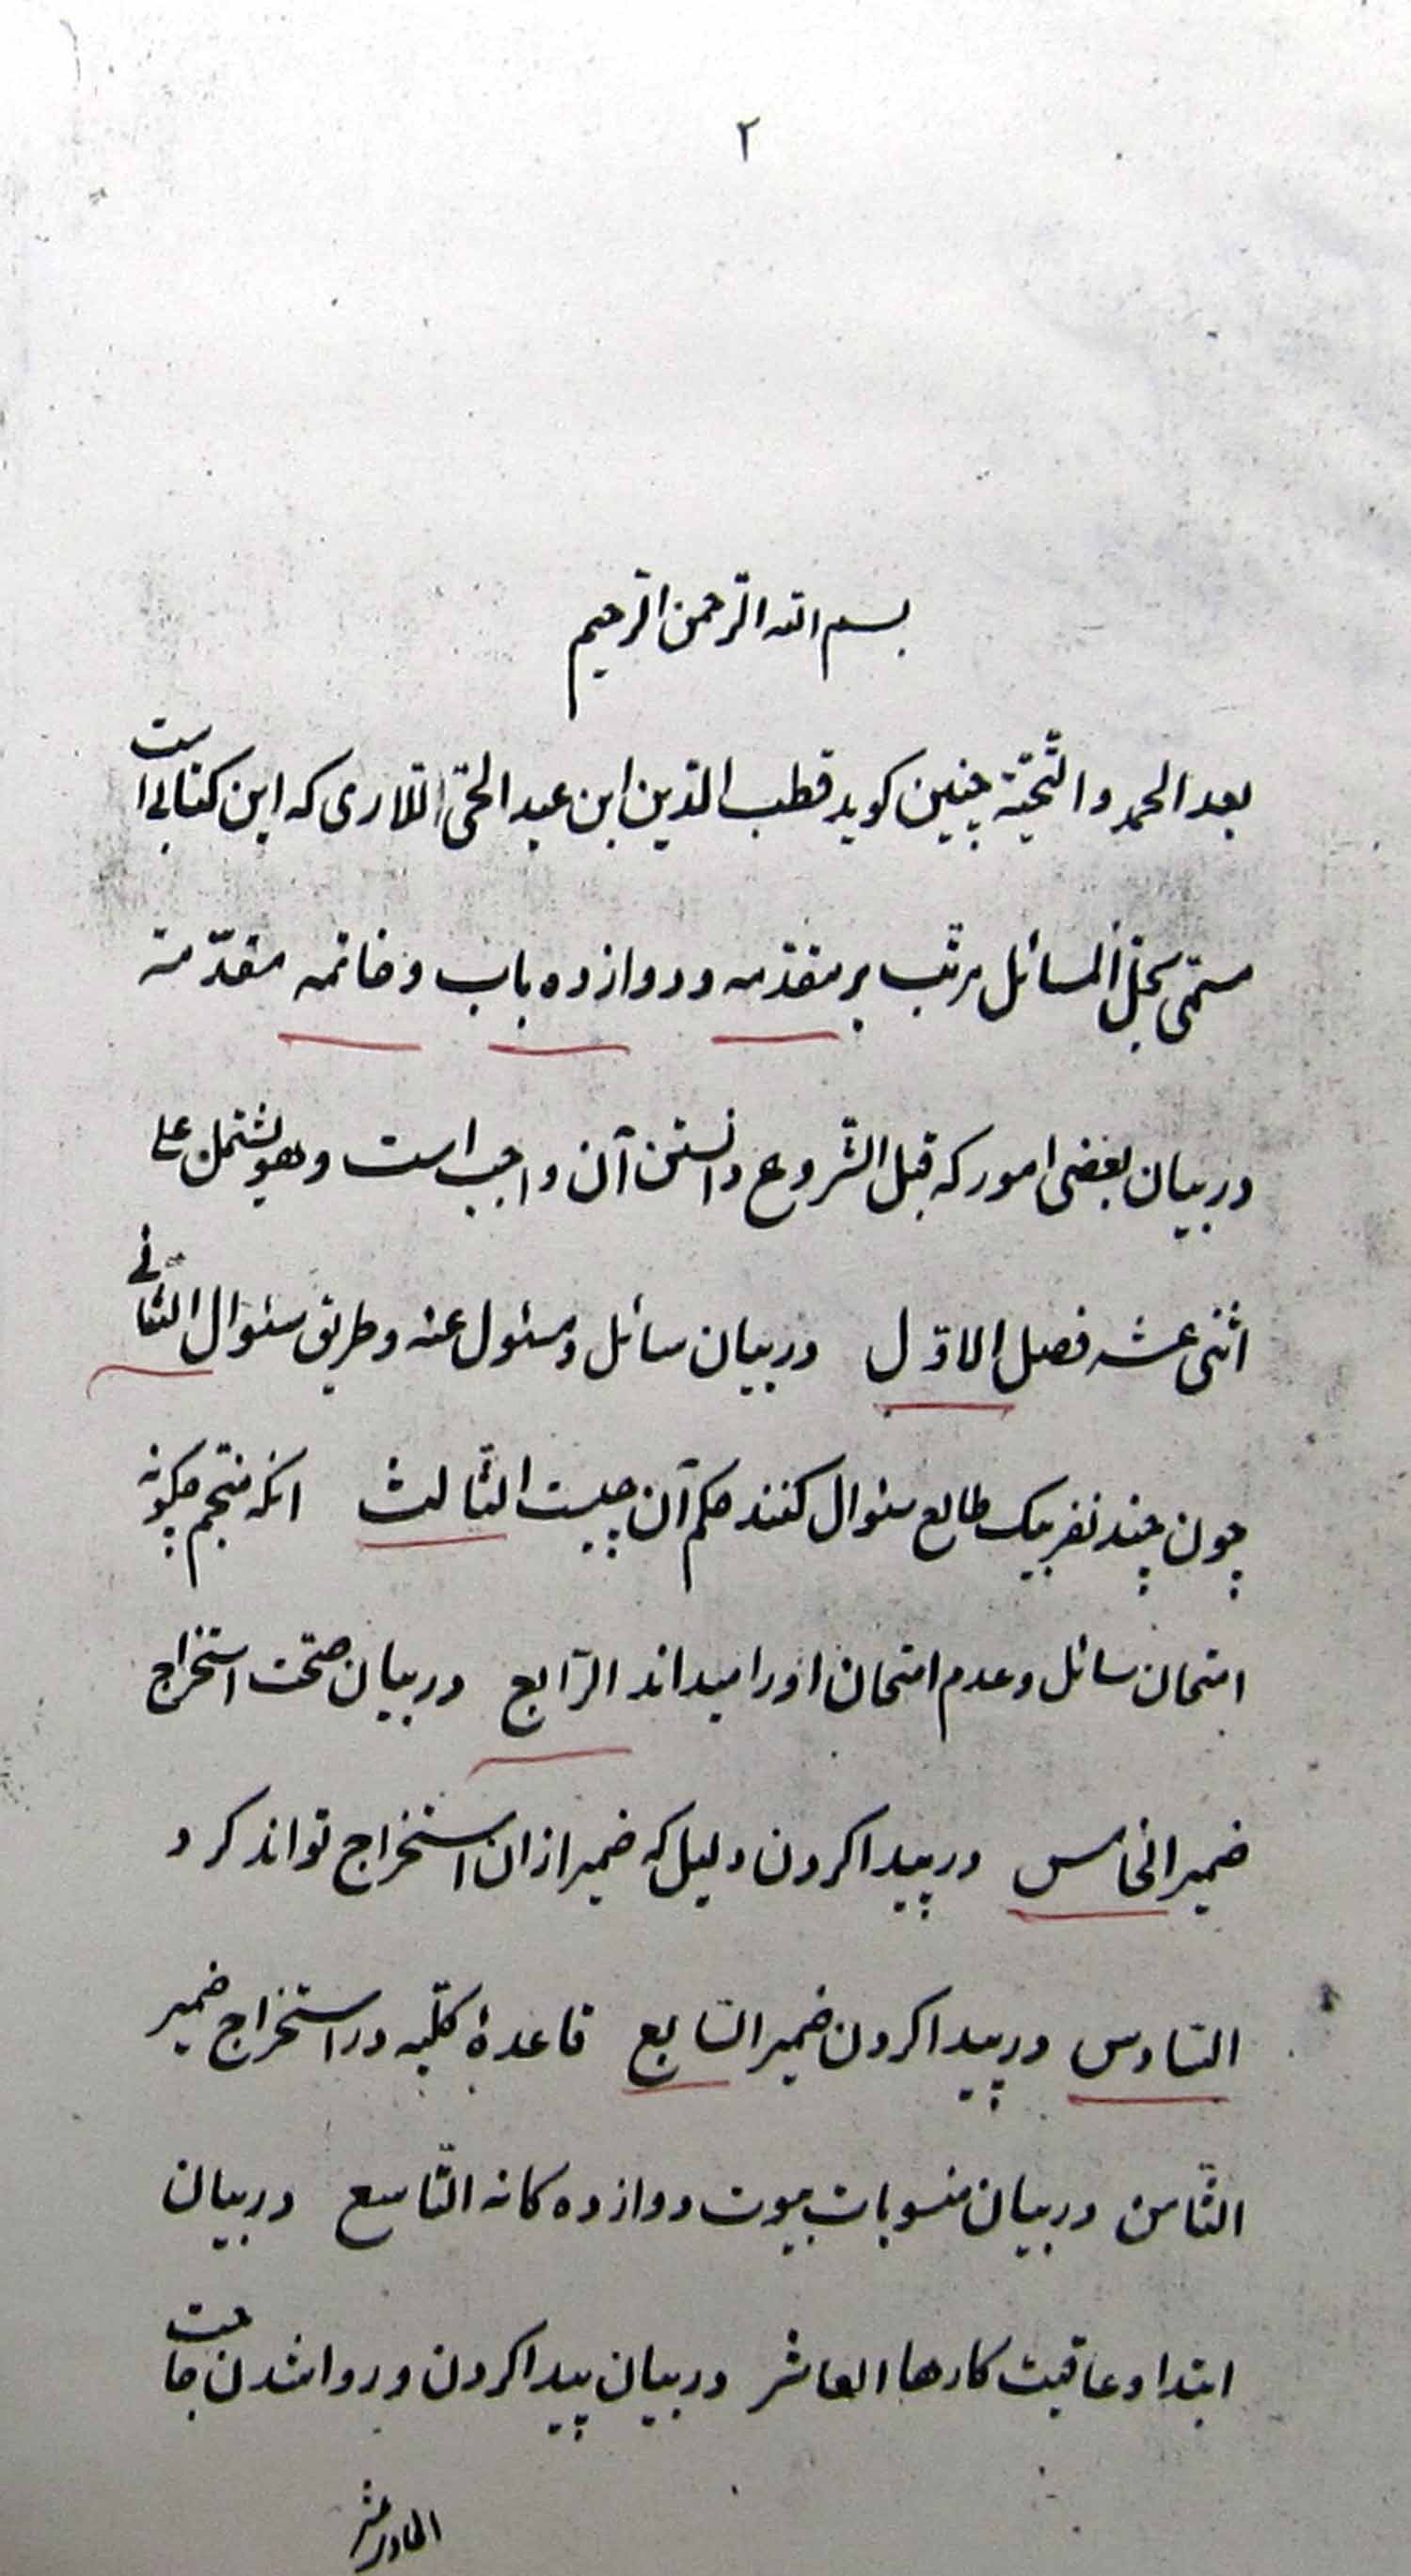 ۲
بسم الله الرحمن الرحیم
بعد الحمد والتّحیّة چنین کوید قطب الدّین ابن عبد الحیّ اللاری که این کتابی است
مسمّی بحلّ المسائل مرتّب بر مقدّمه و دوازده باب و خاتمه مقدّمة
در بیان بعضی امور که قبل الشّروع دانستن آن واجب است و هو یشتمل علی
اثنی عشر فصل الاوّل در بیان سائل و مسئول عنه و طریق سئوال الثّانی
چون چند نفر بیک طالع سئوال کنند حکم آن چیست الثّالث انکه منجّم چکونه
امتحان سائل و عدم امتحان اورا میداند الرّابع در بیان صحّت استخراج
ضمیر الخامس در پیدا کردن دلیل که ضمیر ازان استخراج تواند کرد
السّادس در پیدا کردن ضمیر السّابع قاعدهٔ کلّیه در استخراج ضمیر
الثّامن در بیان منسوبات بیوت دوازده کانه التّاسع در بیان
ابتدا و عاقبت کارها العاشر در بیان پیدا کردن و روا شدن حاجت
الحادیعشر